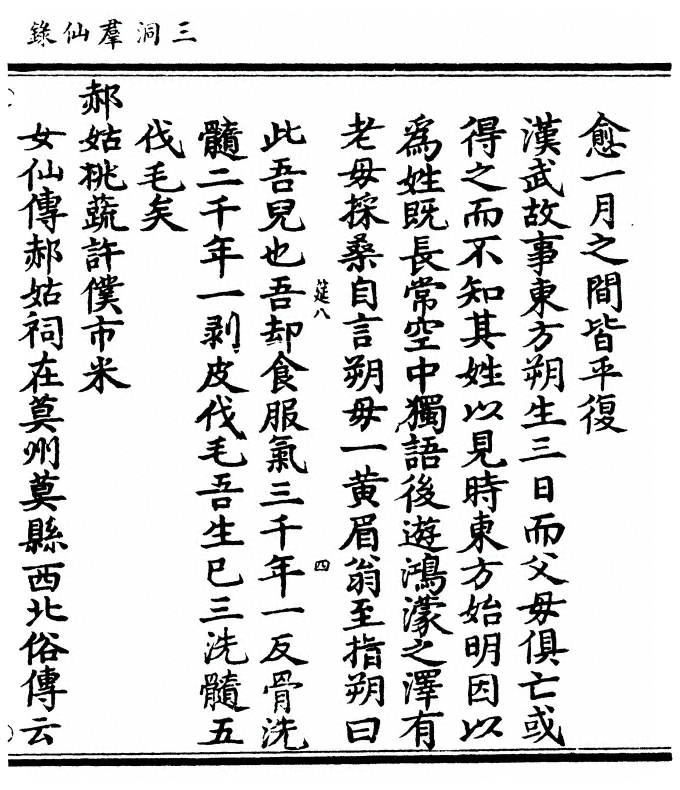 三洞羣仙錄
愈一月之間皆平復
漢武故事東方朔生三日而父毋俱亡或
得之而不知其姓以見時東方始明因以
爲姓旣長常空中獨語後遊鴻濛之澤有
老毋採桑自言朔毋一黄眉翁至指朔曰
此吾兒也吾却食服氣三千年一反骨洗
髓二千年一剥皮伐毛吾生巳三洗髓五
伐毛矣
筵八
四
郝姑桃蔬許僕市米
女仙傳郝姑祠在莫州莫縣西北俗傳云